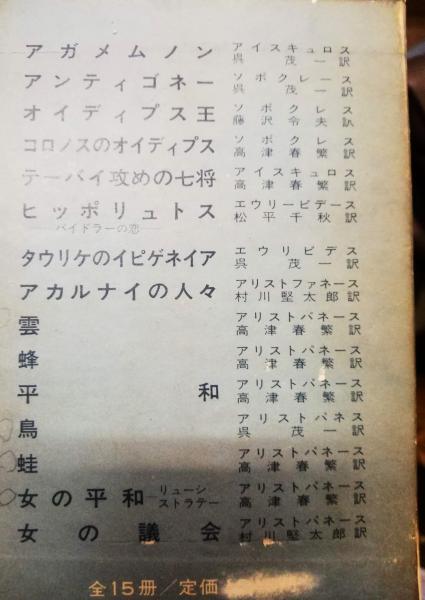 アガメムノン アイスキュロス 呉茂一訳
アンティゴネー ソポクレース 呉茂一訳
オイディプス王 ソポクレス 藤沢令夫訳
コロノスのオイディプス ソポクレス 高津春繁訳
テーバイ攻めの七将 アイスキュロス 高津春繁訳
ヒッポリュトス エウリーピデース 松平千秋訳
―パイドラーの恋―
タウリケのイピゲネイア エウリピデス 呉茂一訳
アカルナイの人々 アリストファネース 村川堅太郎訳
雲 アリストパネース 高津春繁訳
蜂 アリストパネース 高津春繁訳
平和 アリストパネース 高津春繁訳
鳥 アリストパネス 呉茂一訳
蛙 アリストパネース 高津春繁訳
女の平和―リューシストラテー― アリストパネース 高津春繁訳
女の議会 アリストパネース 村川堅太郎訳
全15冊/定価